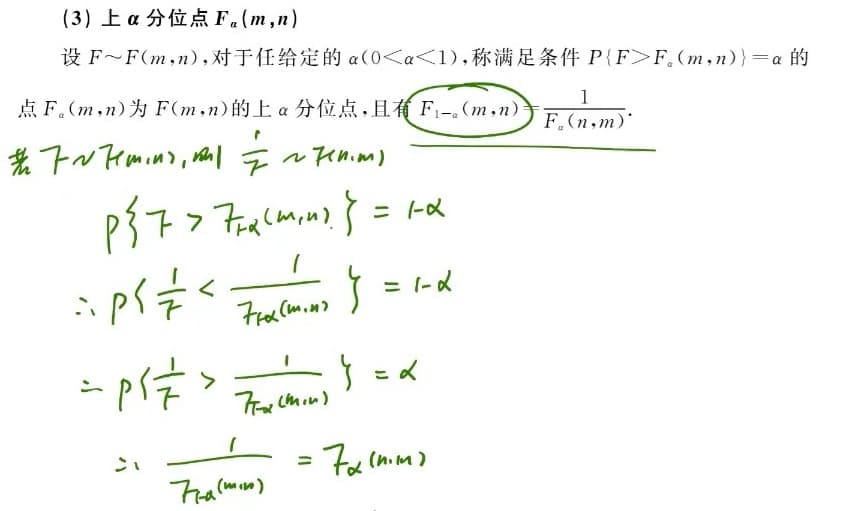 (3) 上 α 分位点 Fα(m,n)
设 F~F(m,n),对于任给定的 α(0<α<1),称满足条件 P{F>Fα(m,n)}=α 的
点 Fα(m,n)为 F(m,n)的上 α 分位点,且有 F₁₋α(m,n)=1/Fα(n,m).
若 F~F(m,n), 则 1/F ~ F(n,m)
P{F > F₁₋α(m,n)} = 1-α
∴ P{1/F < 1/F₁₋α(m,n)} = 1-α
∴ P{1/F > 1/F₁₋α(m,n)} = α
∴ 1/F₁₋α(m,n) = Fα(n,m)